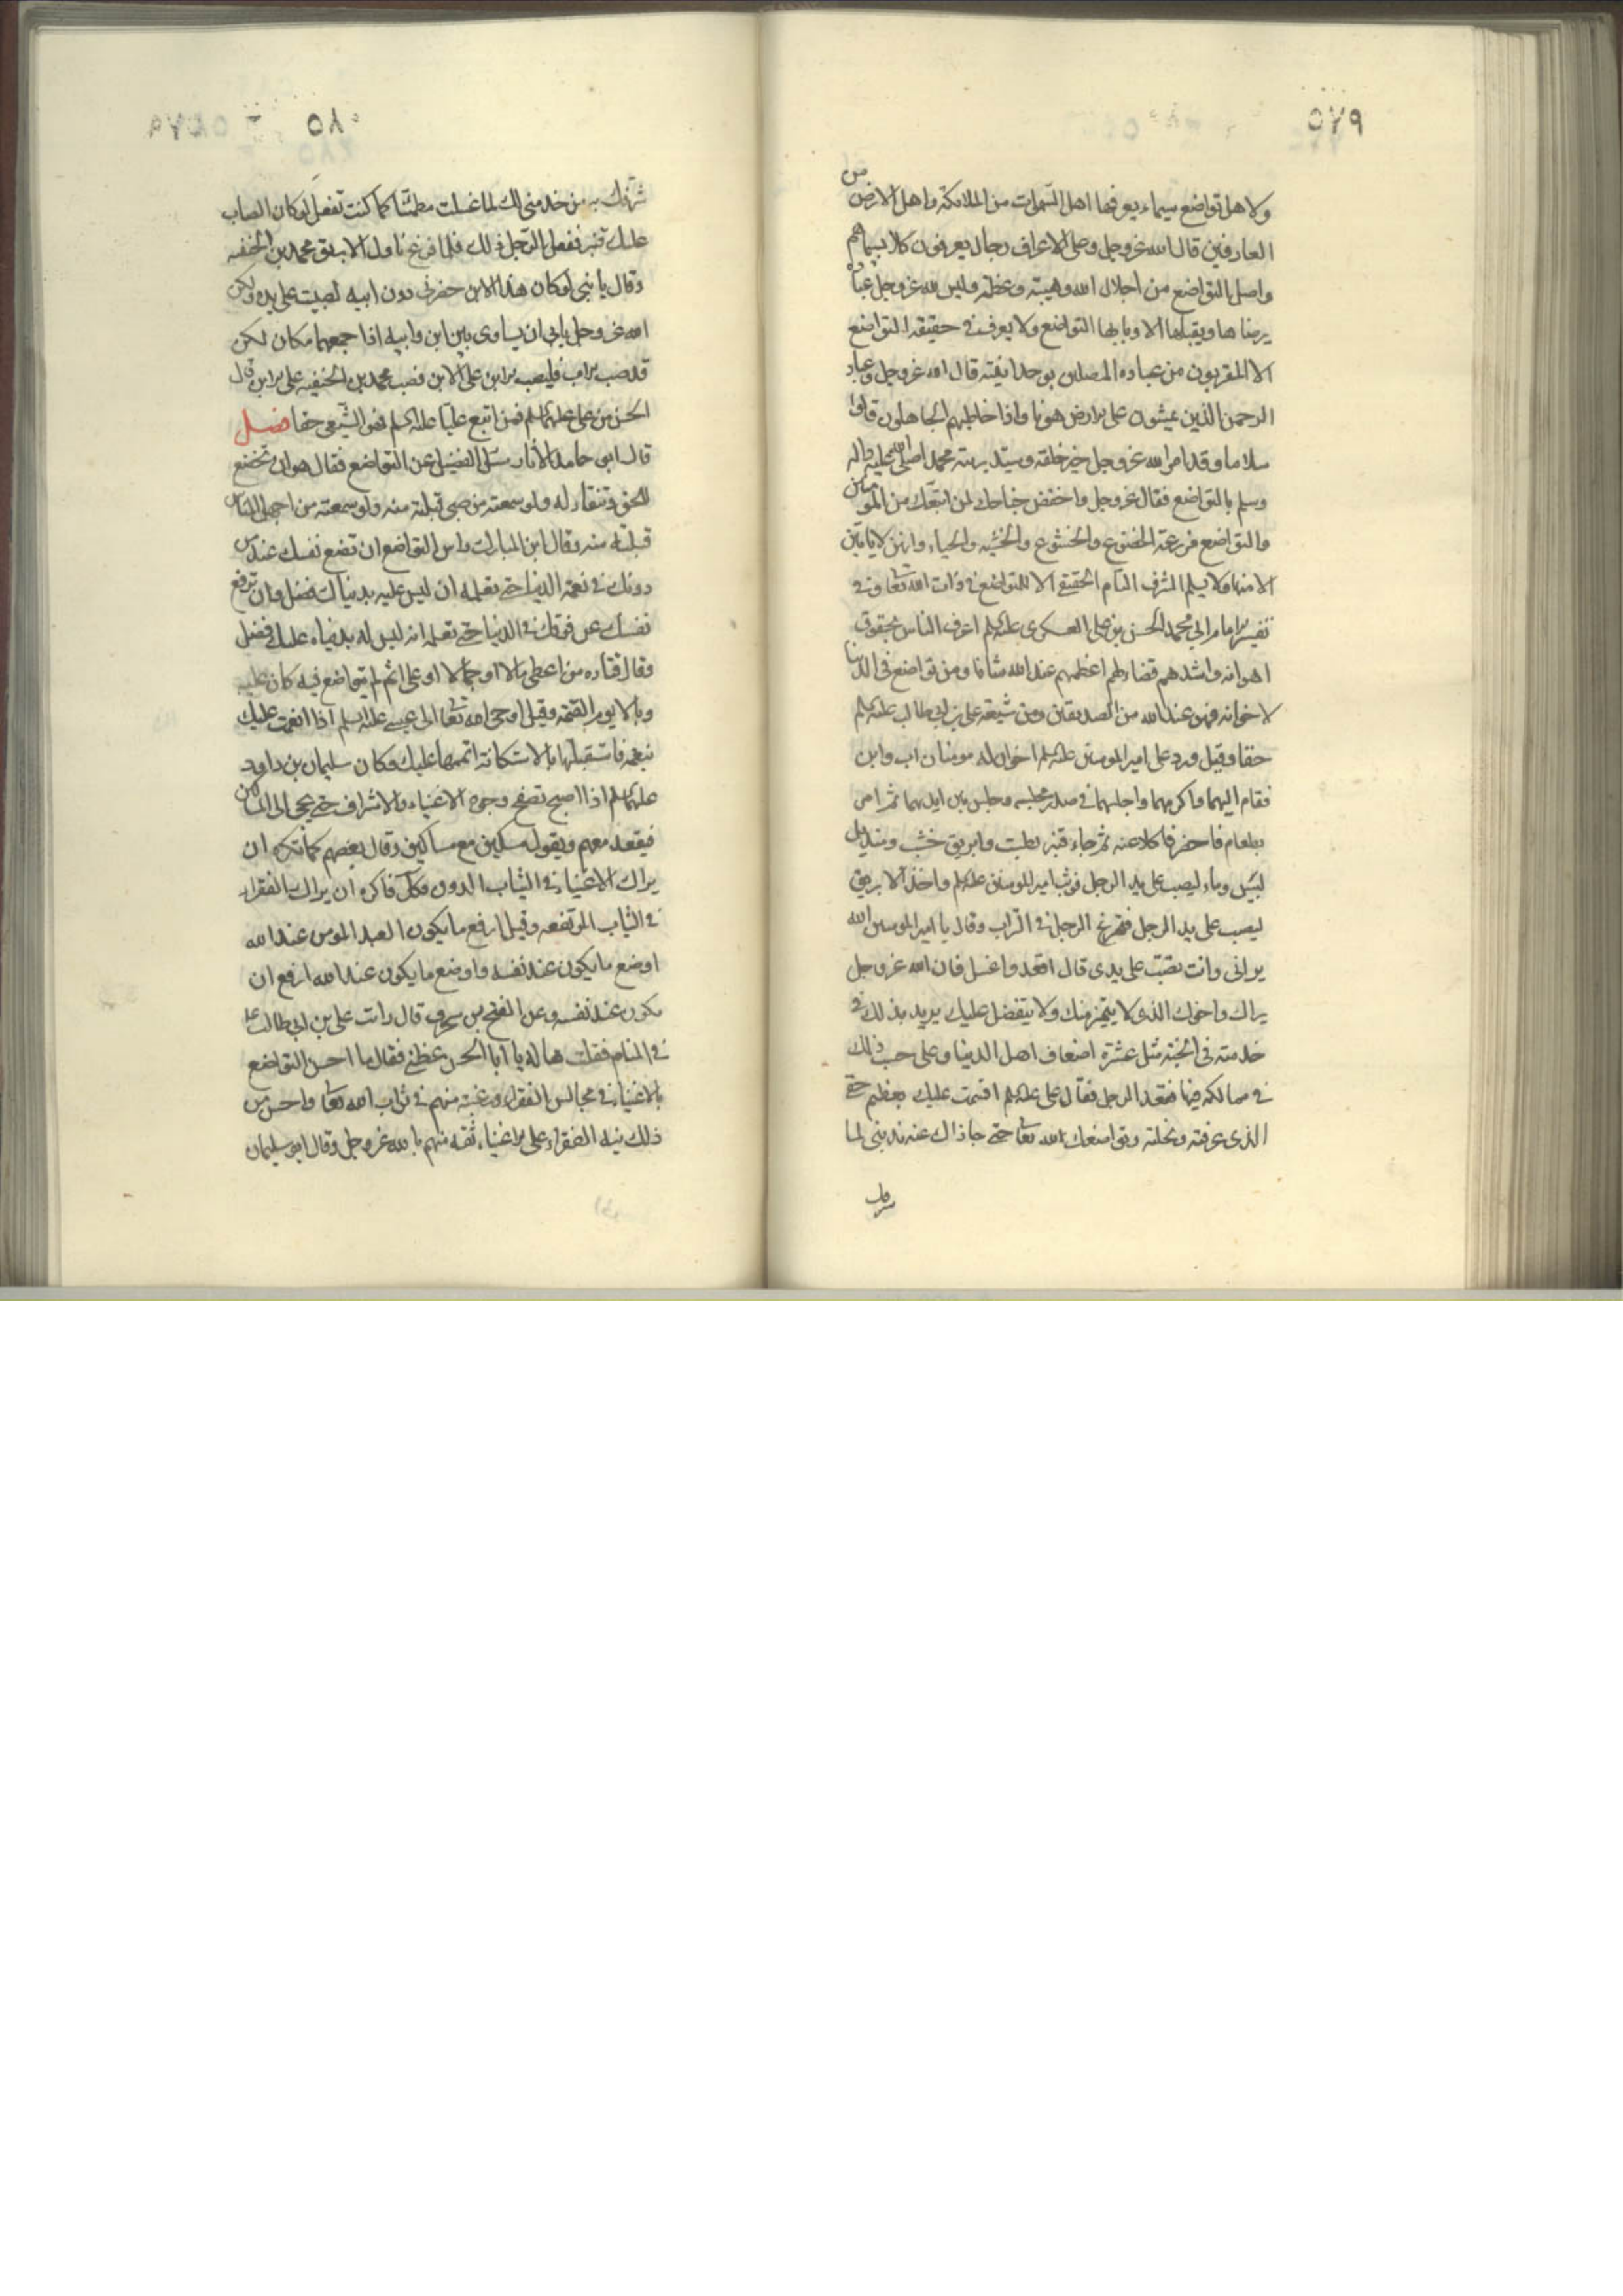 ٥٧٩
ولاهل تواضع سيماء يعرفها اهل السموات من الملائكة واهل الارض من
العارفين قال الله عز وجل وعلى الاعراف رجال يعرفون كلا بسيماهم
واصل التواضع من اجلال الله وهيبته وعظمته وليس لله عز وجل عبادة
يرضاها ويقبلها الا وبابها التواضع ولا يعرف في حقيقة التواضع
الا المقربون من عباده المتصلين بوحدانيته قال الله عز وجل وعباد
الرحمن الذين يمشون على الارض هونا واذا خاطبهم الجاهلون قالوا
سلاما وقد امر الله عز وجل خير خلقه وسيد بريته محمدا صلى الله عليه واله
وسلم بالتواضع فقال عز وجل واخفض جناحك لمن اتبعك من المؤمنين
والتواضع مزرعة الخضوع والخشوع والخشية والحياء وانهن لا ياتين
الا منها ولا يسلم الشرف التام الحقيقي الا للتواضع في ذات الله تعا وفي
تفسير الامام ابي محمد الحسن بن علي العسكري عليه السلم اعرف الناس بحقوق
اخوانه واشدهم قضاء لهم اعظمهم عند الله شانا ومن تواضع في الدنيا
لاخوانه فهو عند الله من الصديقين ومن شيعة علي بن ابي طالب عليه السلم
حقا وقيل ورد على امير المومنين عليه السلم اخوان له مومنان اب وابن
فقام اليهما واكرمهما واجلسهما في صدر مجلسه وجلس بين ايديهما ثم امر
بطعام فاحضر فاكلا عنه ثم جاء قنبر بطست وابريق خشب ومنديل
ليبس وماء ليصب على يد الرجل فوثب امير المومنين عليه السلم واخذ الابريق
ليصب على يد الرجل فتمرغ الرجل في التراب وقال يا امير المومنين الله
يراني وانت تصب على يدي قال اقعد واغسل فان الله عز وجل
يراك واخوك الذي لا يتميز منك ولا يتفضل عليك يريد بذلك في
خدمته في الجنة مثل عشرة اضعاف اهل الدنيا وعلى حسب ذلك
في ممالكه فيها فقعد الرجل فقال علي عليه السلم اقسمت عليك بعظيم حقي
الذي عرفته ونحلته وتواضعك لله تعا حتى جازاك عنه ندبني لما
شرفك
٥٨٠
شرفك به من خدمتي لك لما غسلت مطمئنا كما كنت تفعل لو كان الصاب
عليك قنبر ففعل الرجل ذلك فلما فرغ ناول الابريق محمد بن الحنفيه
وقال يا بني لو كان هذا الابن حضرني دون ابيه لصببت على يده ولكن
الله عز وجل يابى ان يساوى بين ابن وابيه اذا جمعهما مكان لكن
قد صب الاب فليصب الابن على الابن فصب محمد بن الحنفيه على الابن قال
الحسن بن علي عليهما السلم فمن اتبع عليا عليه السلم فهو الشيعي حقا فصل
قال ابي حامد الاثار سئل الفضيل عن التواضع فقال هو ان تخضع
للحق وتنقاد له ولو سمعته من صبي قبلته منه ولو سمعته من اجهل الناس
قبلته منه وقال ابن المبارك راس التواضع ان تضع نفسك عند من
دونك في نعمة الدنيا حتى تعلمه ان ليس عليه بدنياك فضل وان ترفع
نفسك عن فوقك في الدنيا حتى تعلمه انه ليس له بدنياه عليك فضل
وقال قتاده من اعطي مالا او جمالا او علما ثم لم يتواضع فيه كان عليه
وبالا يوم القيمة وقيل اوحى الله تعا الى عيسى عليه السلم اذا انعمت عليك
بنعمة فاستقبلها بالاستكانة اتممها عليك وكان سليمان بن داود
عليهما السلم اذا اصبح تصفح وجوه الاغنياء والاشراف حتى يجى الى المساكين
فيقعد معهم ويقول مسكين مع مساكين وقال بعضهم كما تكره ان
يراك الاغنياء في الثياب الدون فكذلك فاكره ان يراك الفقراء
في الثياب المرتفعه وقيل ارفع ما يكون العبد المومن عند الله
اوضع ما يكون عند نفسه واوضع ما يكون عند الله ارفع ان
يكون عند نفسه وعن الفتح بن شحرف قال رايت علي بن ابي طالب ع
في المنام فقلت له يا ابا الحسن عظني فقال ما احسن التواضع
بالاغنياء في مجالس الفقراء رغبة منهم في ثواب الله تعا واحسن من
ذلك تيه الفقراء على الاغنياء ثقه منهم بالله عز وجل وقال ابو سليمان